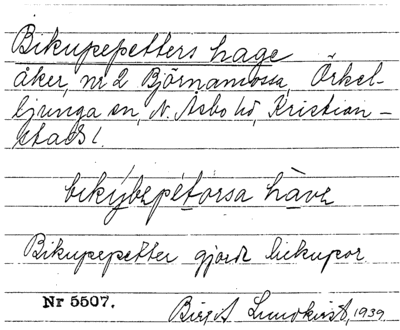 Bikupepetters hage
åker, nr 2 Björnamossa, Örkel-
ljunga sn, N. Åsbo hd, Kristian-
stads l.
bikýbepétorsa hàve
Bikupepetter gjorde bikupor
Nr 5507.
Lundkvist, 1939